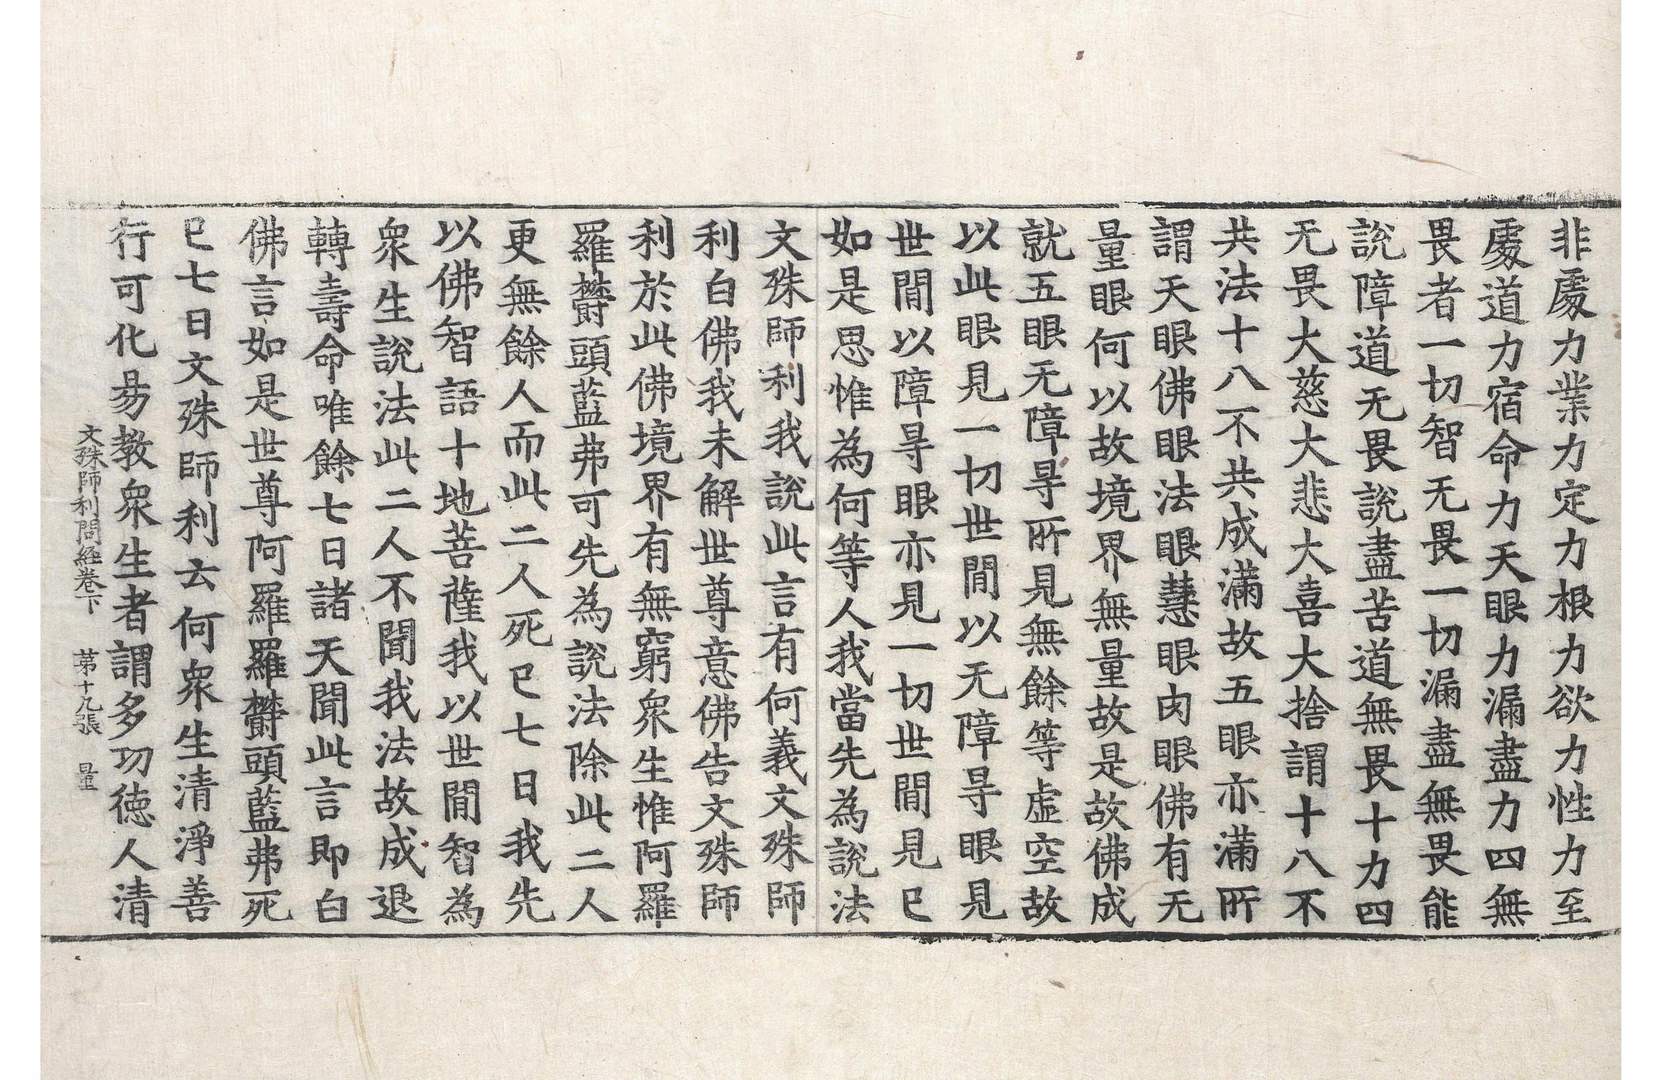 非處力業力定力根力欲力性力至
處道力宿命力天眼力漏盡力四無
畏者一切智无畏一切漏盡無畏能
說障道无畏說盡苦道無畏十力四
无畏大慈大悲大喜大捨謂十八不
共法十八不共成滿故五眼亦滿所
謂天眼佛眼法眼慧眼肉眼佛有无
量眼何以故境界無量故是故佛成
就五眼无障㝵所見無餘等虛空故
以此眼見一切世閒以无障㝵眼見
世閒以障㝵眼亦見一切世閒見已
如是思惟為何等人我當先為說法
文殊師利我說此言有何義文殊師
利白佛我未解世尊意佛告文殊師
利於此佛境界有無窮衆生惟阿羅
羅欝頭藍弗可先為說法除此二人
更無餘人而此二人死已七日我先
以佛智語十地菩薩我以世閒智為
衆生說法此二人不聞我法故成退
轉壽命唯餘七日諸天聞此言即白
佛言如是世尊阿羅羅欝頭藍弗死
已七日文殊師利云何衆生清淨善
行可化易教衆生者謂多功德人清
文殊師利問経卷下 第十九張 量